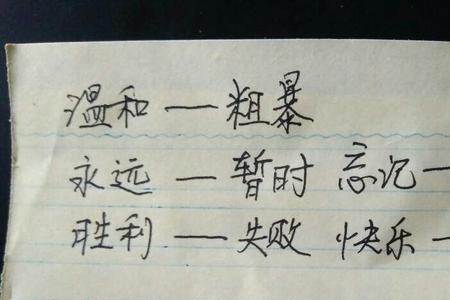 温和—粗暴
永远—暂时 忘记—
胜利—失败 快乐—